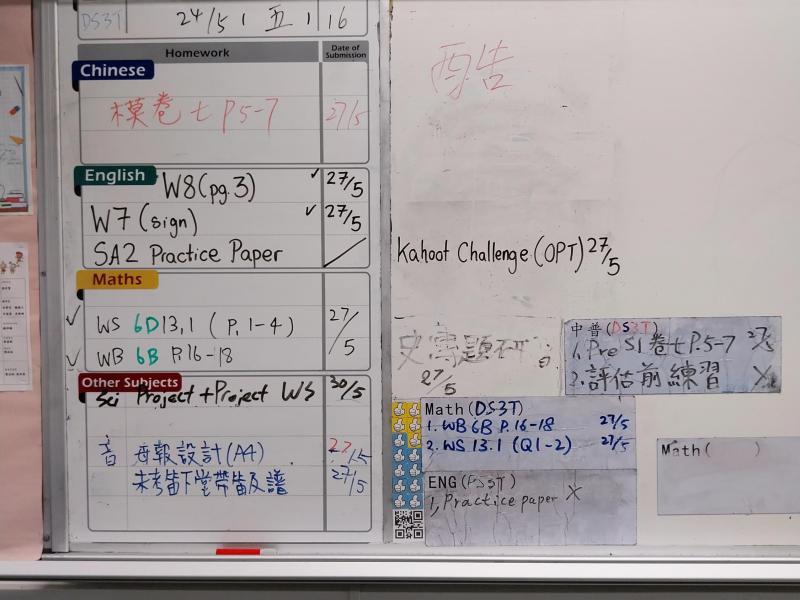 DS3T 24/5 ( 五 ) 16
Homework Date of Submission
Chinese
模卷七 P.5-7 27/5
English
W8(pg.3) ✓ 27/5
W7 (sign) ✓ 27/5
SA2 Practice Paper /
Maths
✓ WS 6D13.1 ( P. 1-4 ) 27/5
✓ WB 6B P.16-18
Other Subjects
Sci Project + Project WS 30/5
音 母報設計(A4) 27/5
未考笛下堂帶笛及譜 27/5
Kahoot Challenge (OPT) 27/5
題研
27/5
中普(DS3T)
1. Pre S1 卷七 P.5-7 27/5
2. 評估前練習 X
Math (DS3T)
1. WB 6B P.16-18 27/5
2. WS 13.1 (Q1-2) 27/5
ENG (PS3T)
1, Practice paper X
Math( )